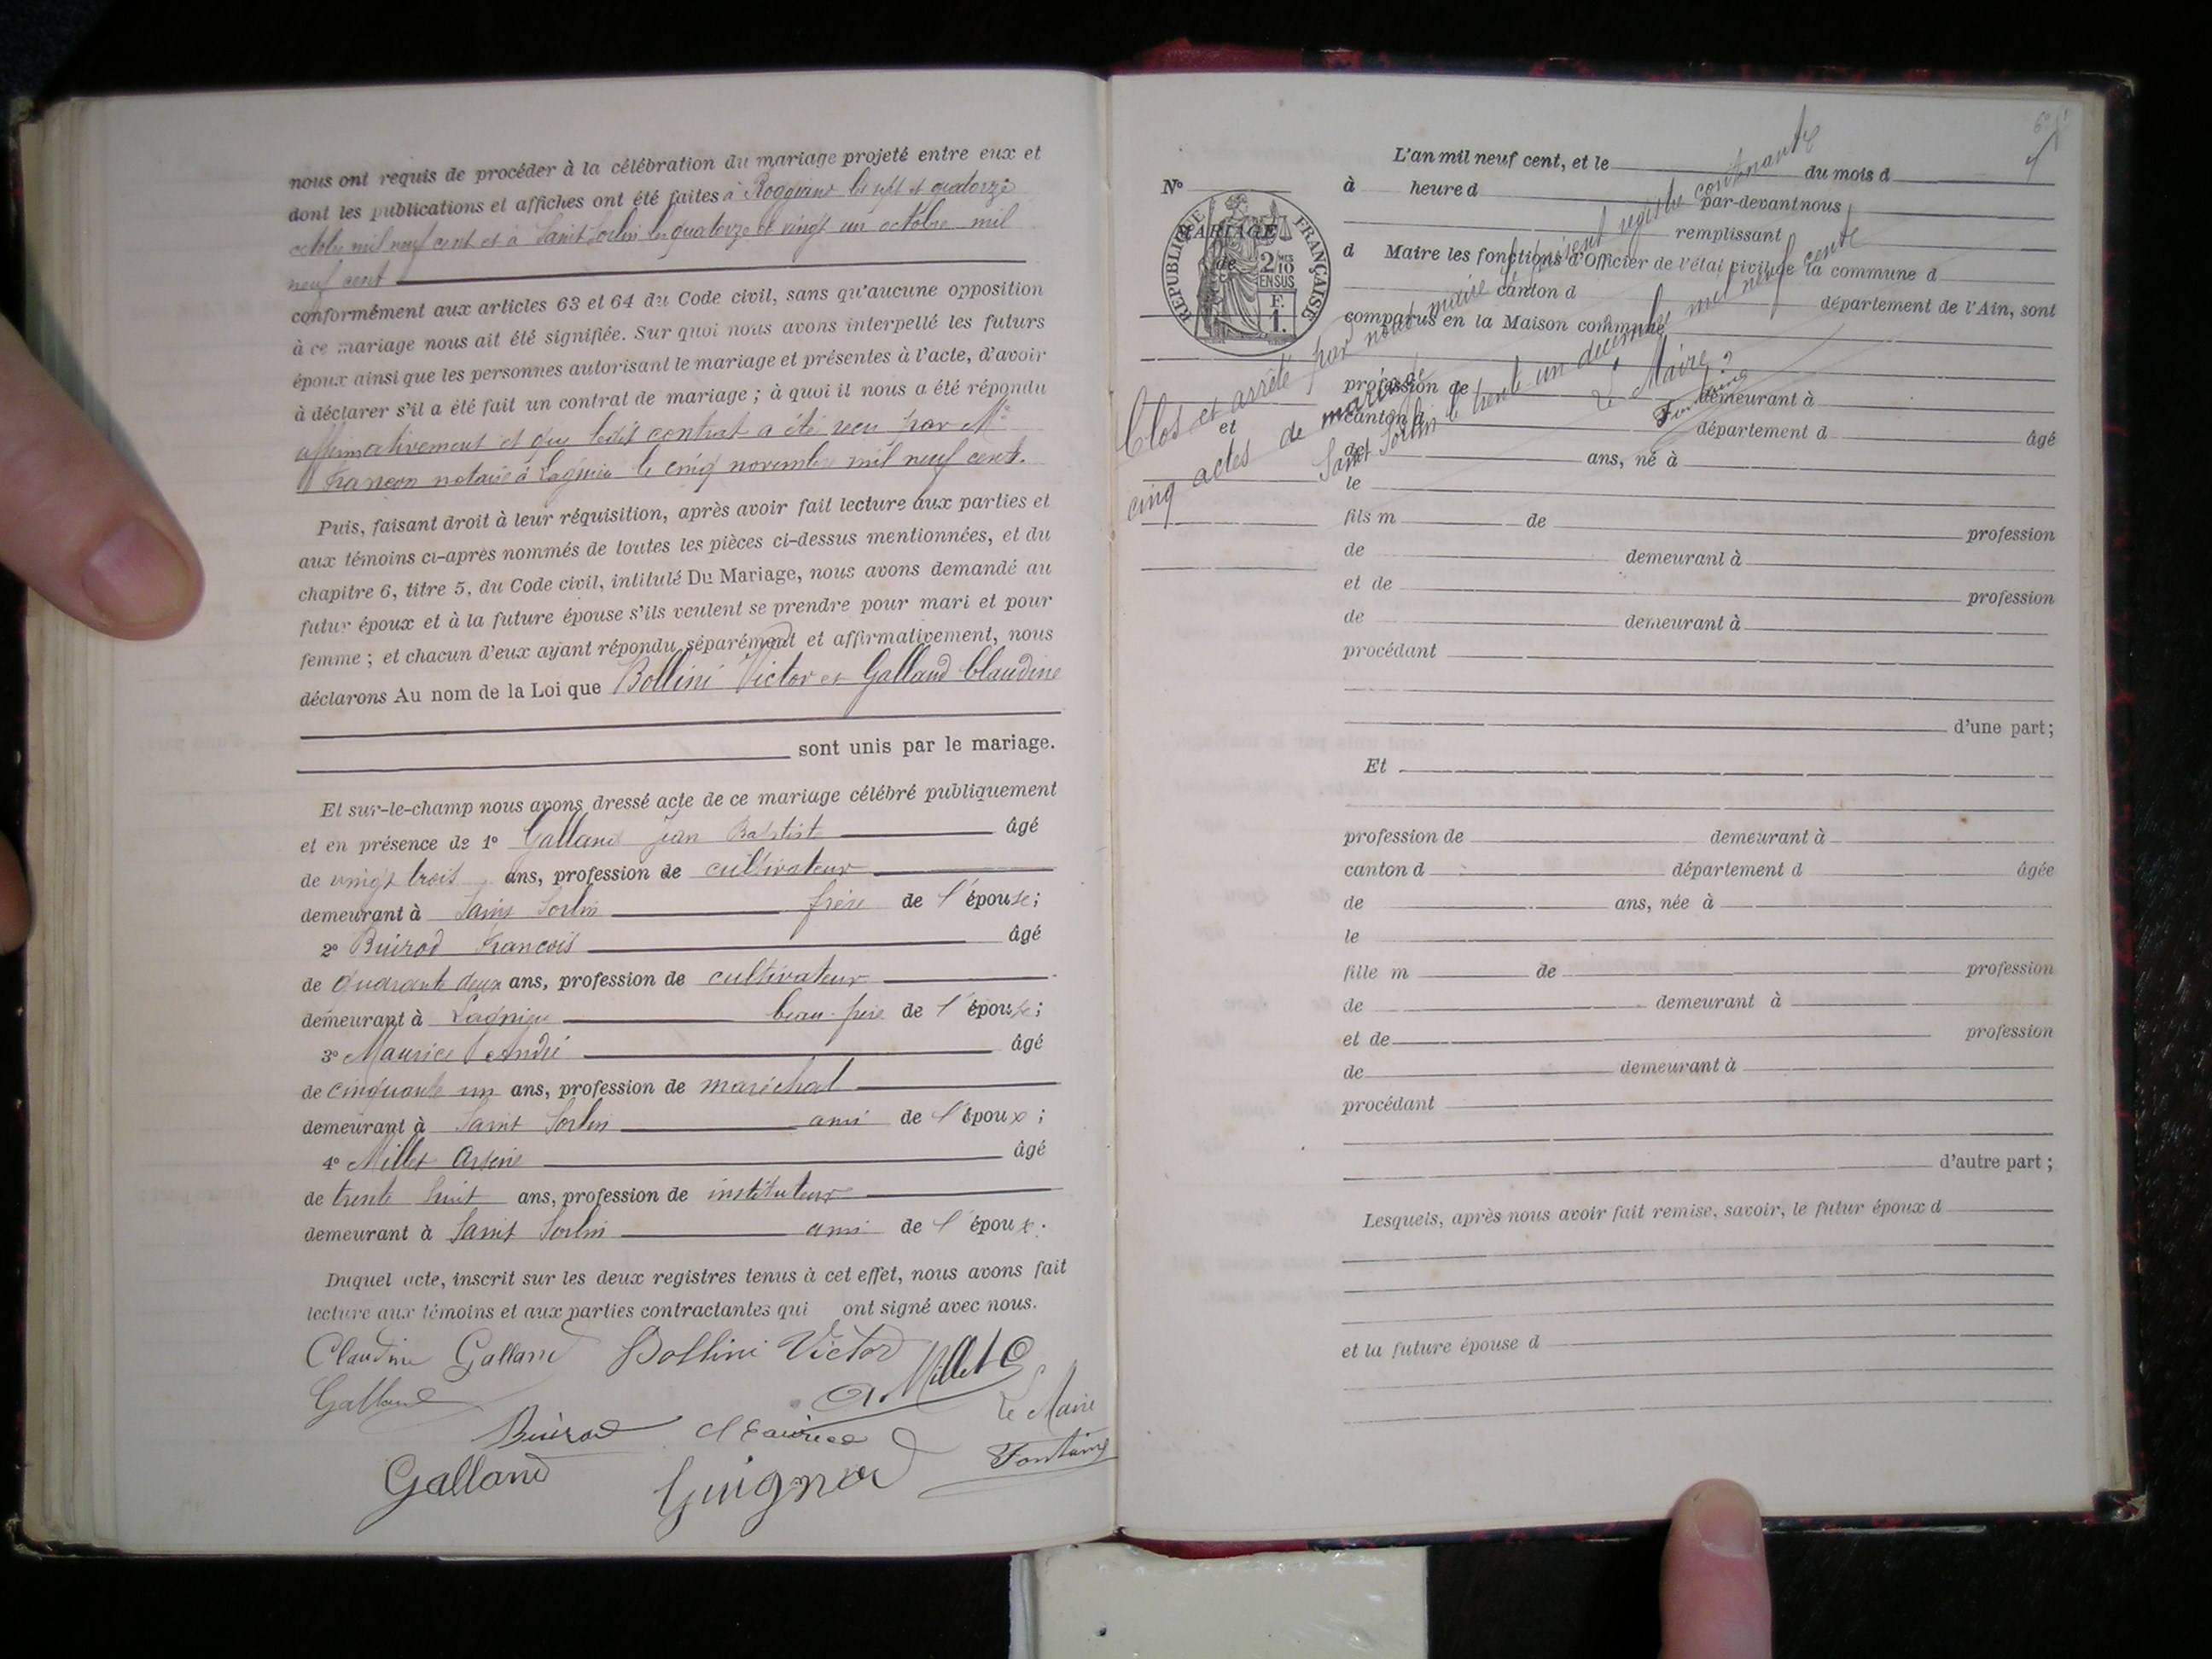 nous ont requis de procéder à la célébration du mariage projeté entre eux et
dont les publications et affiches ont été faites à Roggiano les sept et quatorze
octobre mil neuf cent et à Saint Sorlin les quatorze et vingt un octobre mil
neuf cent
conformément aux articles 63 et 64 du Code civil, sans qu'aucune opposition
à ce mariage nous ait été signifiée. Sur quoi nous avons interpellé les futurs
époux ainsi que les personnes autorisant le mariage et présentes à l'acte, d'avoir
à déclarer s'il a été fait un contrat de mariage ; à quoi il nous a été répondu
affirmativement et que ledit contrat a été reçu par Me
Françon notaire à Lagnieu le cinq novembre mil neuf cent.
Puis, faisant droit à leur réquisition, après avoir fait lecture aux parties et
aux témoins ci-après nommés de toutes les pièces ci-dessus mentionnées, et du
chapitre 6, titre 5, du Code civil, intitulé Du Mariage, nous avons demandé au
futur époux et à la future épouse s'ils veulent se prendre pour mari et pour
femme ; et chacun d'eux ayant répondu séparément et affirmativement, nous
déclarons Au nom de la Loi que Bollini Victor et Galland Claudine
sont unis par le mariage.
Et sur-le-champ nous avons dressé acte de ce mariage célébré publiquement
et en présence de 1° Galland Jean Baptiste âgé
de vingt trois ans, profession de cultivateur
demeurant à Saint Sorlin frère de l'épouse;
2° Buirod François âgé
de quarante deux ans, profession de cultivateur
demeurant à Lagnieu beau-frère de l'épouse;
3° Maurice André âgé
de cinquante un ans, profession de maréchal
demeurant à Saint Sorlin ami de l'époux ;
4° Millet Arsène âgé
de trente huit ans, profession de instituteur
demeurant à Saint Sorlin ami de l'époux.
Duquel acte, inscrit sur les deux registres tenus à cet effet, nous avons fait
lecture aux témoins et aux parties contractantes qui ont signé avec nous.
Claudine Galland Bollini Victor
Galland A. Millet Le Maire
Buirod Maurice Fontaine
Galland Guignod
L'an mil neuf cent, et le du mois d
N° à heure d par-devant nous
MARIAGE remplissant
RÉPUBLIQUE FRANÇAISE
2/10 EN SUS
F. 1.
de
d Maire les fonctions d'Officier de l'état civil de la commune d
canton d département de l'Ain, sont
comparus en la Maison commune
Clos et arrêté par nous maire le présent registre contenant
cinq actes de mariage
Saint Sorlin le trente un décembre mil neuf cent
Le Maire
Fontaine
profession de demeurant à
et canton d département d âgé
de ans, né à
le
fils m de profession
de demeurant à
et de profession
de demeurant à
procédant
d'une part;
Et
profession de demeurant à
canton d département d âgée
de ans, née à
le
fille m de profession
de demeurant à
et de profession
de demeurant à
procédant
d'autre part ;
Lesquels, après nous avoir fait remise, savoir, le futur époux d
et la future épouse d